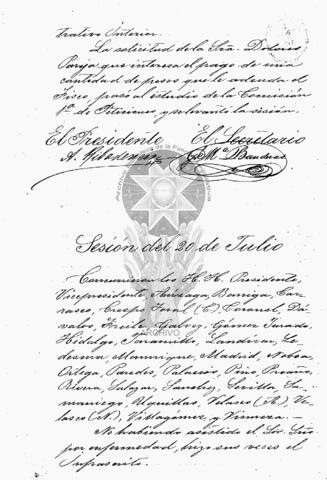 trativo Interior.
La solicitud de la Sra. Dolores
Pareja que interesa el pago de una
cantidad de pesos que le adeuda el
Fisco, pasó al estudio de la Comisión
1ª de Peticiones, y se levantó la sesión.
El Presidente El Secretario
A. Ribadeneira
ARCHIVO
Sesión del 20 de Julio
Concurrieron los H. H. Presidente,
Vicepresidente, Arízaga, Barriga, Car-
rasco, Crespo Toral (E.), Coronel, Dá-
valos, Freile, Galvez, Gómez Jurado,
Hidalgo, Jaramillo, Landívar, Le-
desma, Manrique, Madrid, Noboa,
Ortega, Paredes, Palacios, Pino, Proaño,
Rivera, Salazar, Sanchez, Sevilla, Sa-
maniego, Urquillas, Velasco (A.), Ve-
lasco (N.), Villagómez y
No habiendo asistido el Sor. Srio
por enfermedad, hizo sus veces el
Infrascrito.